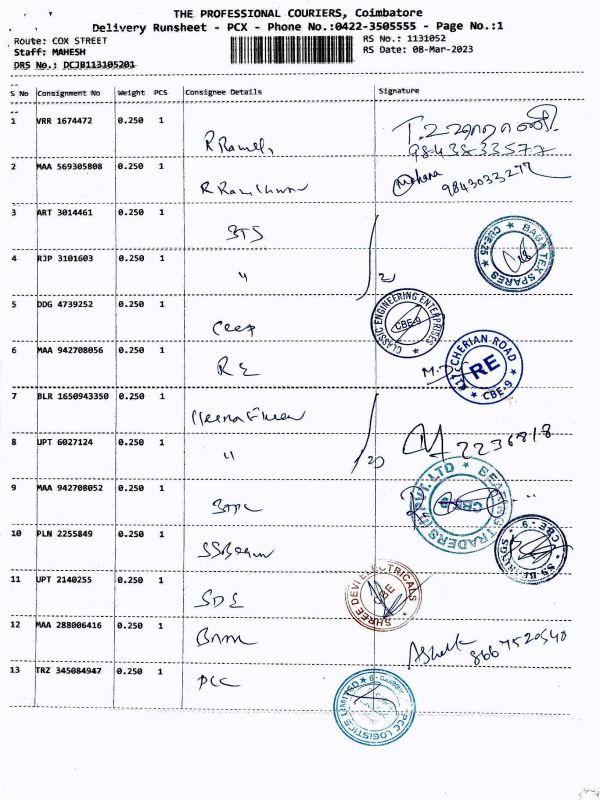 THE PROFESSIONAL COURIERS, Coimbatore
Delivery Runsheet - PCX - Phone No.:0422-3505555 - Page No.:1
Route: COX STREET
RS No.: 1131052
Staff: MAHESH
RS Date: 08-Mar-2023
DRS No.: DCJB113105201
S No Consignment No Weight PCS Consignee Details Signature
1 VRR 1674472 0.250 1
9843833577
2 MAA 569305808 0.250 1 Mohana 9843033277
3 ART 3014461 0.250 1 BTS
BABA TEX SPARES CBE-25
4 RJP 3101603 0.250 1 "
5 DDG 4739252 0.250 1
CLASSIC ENGINEERING ENTERPRISES CBE-9
6 MAA 942708056 0.250 1 RE
KITCHERIAN ROAD RE CBE-9
7 BLR 1650943350 0.250 1
8 UPT 6027124 0.250 1 " 2236818
9 MAA 942708052 0.250 1
BEARING TRADERS PVT. LTD
10 PLN 2255849 0.250 1
CBE-9
11 UPT 2140255 0.250 1 SDE
SHREE DEVI ELECTRICALS CBE
12 MAA 288006416 0.250 1 Ashok 8667520540
13 TRZ 345084947 0.250 1 PCC
PCC LOGISTICS LIMITED